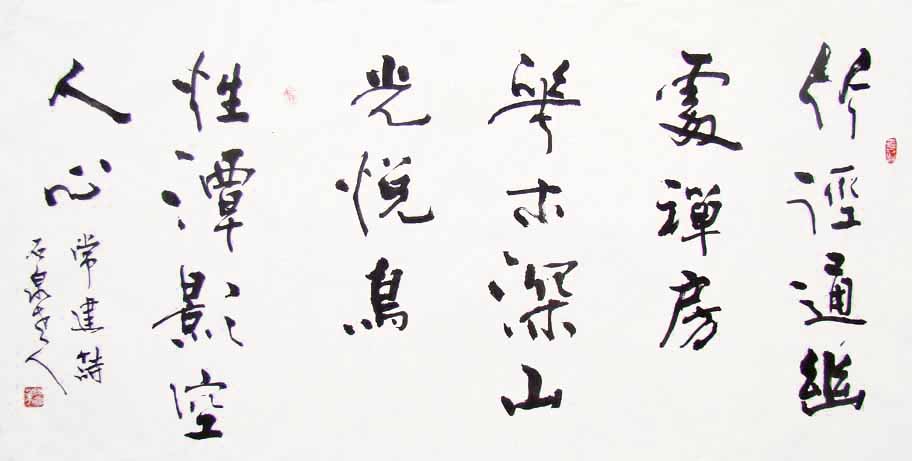 竹徑通幽
處禪房
華木深山
光悅鳥
性潭影空
人心
常建詩
石泉老人